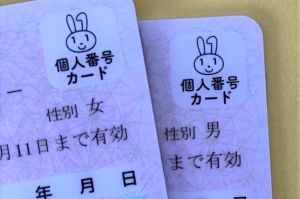 個人番号
カード
性別 女
月11日まで有効
年 月 日
個人番号
カード
性別 男
まで有効
日